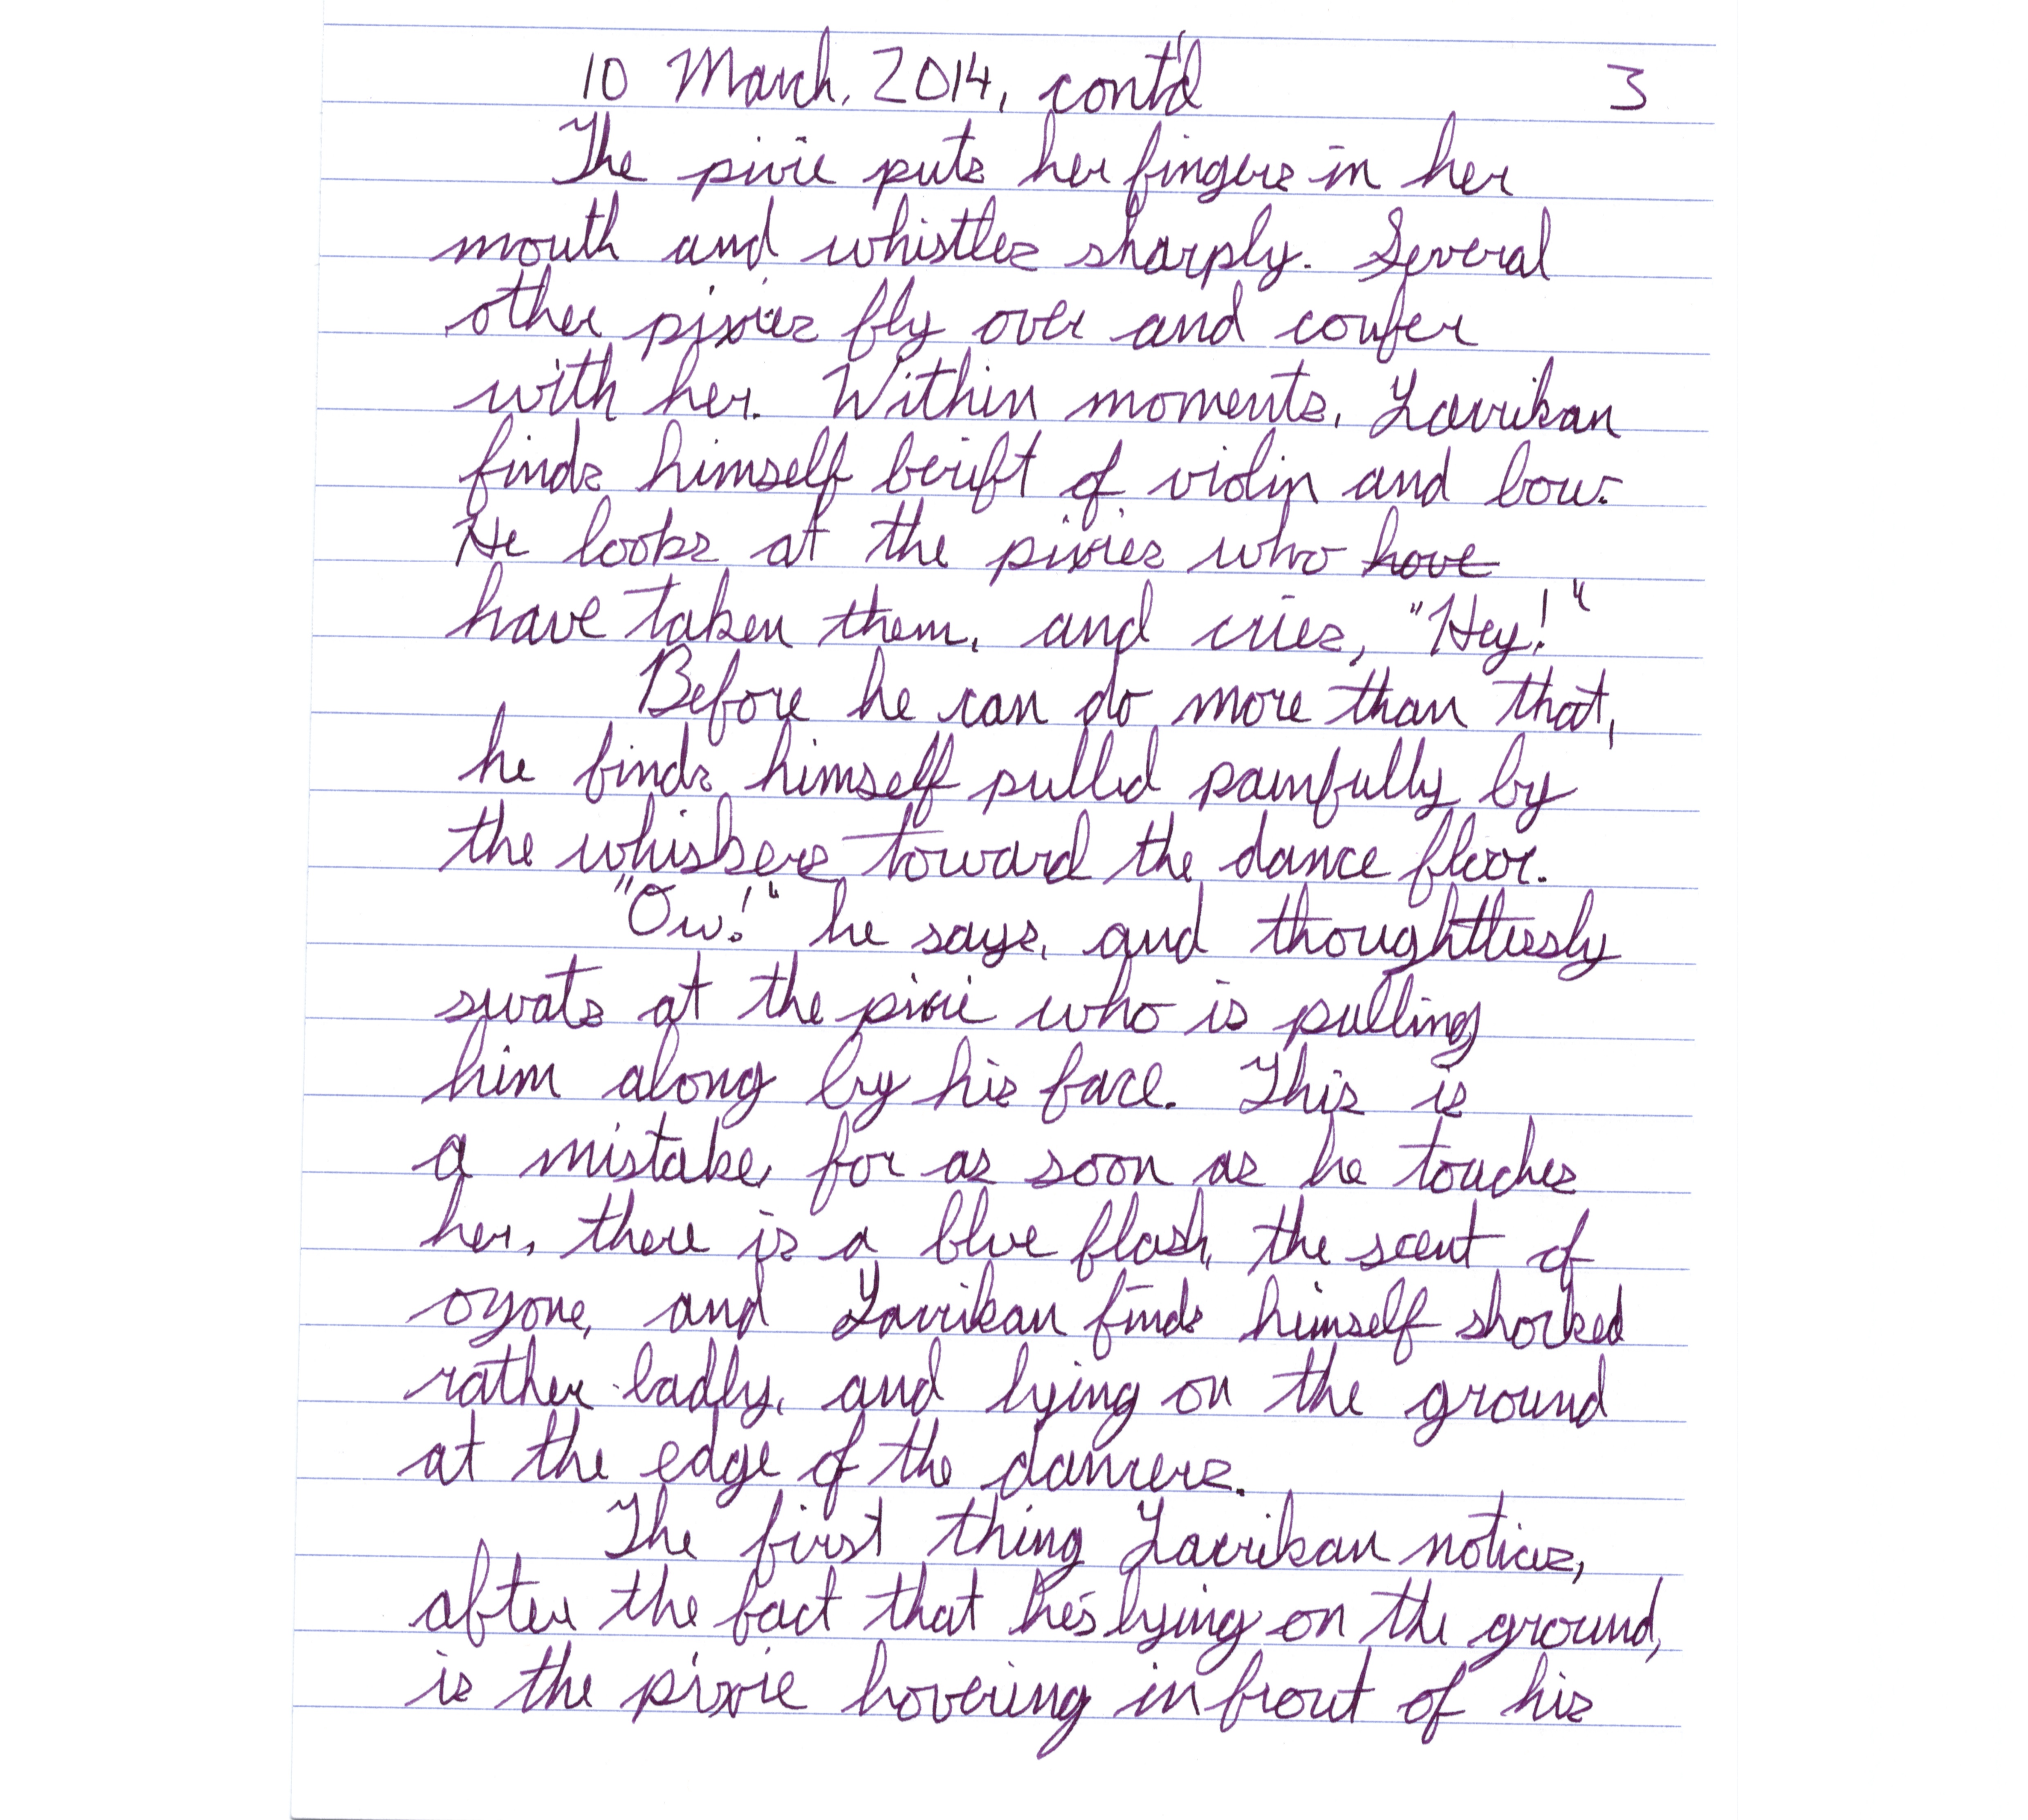 10 March, 2014, cont'd 3
The pixie puts her fingers in her
mouth and whistles sharply. Several
other pixies fly over and confer
with her. Within moments, Larrikan
finds himself berift of violin and bow.
He looks at the pixies who have
have taken them, and cries, "Hey!"
Before he can do more than that,
he finds himself pulled painfully by
the whiskers toward the dance floor.
"Ow!" he says, and thoughtlessly
swats at the pixie who is pulling
him along by his face. This is
a mistake, for as soon as he touches
her, there is a blue flash, the scent of
ozone, and Larrikan finds himself shocked
rather badly, and lying on the ground
at the edge of the dancers.
The first thing Larrikan notices,
after the fact that he's lying on the ground,
is the pixie hovering in front of his